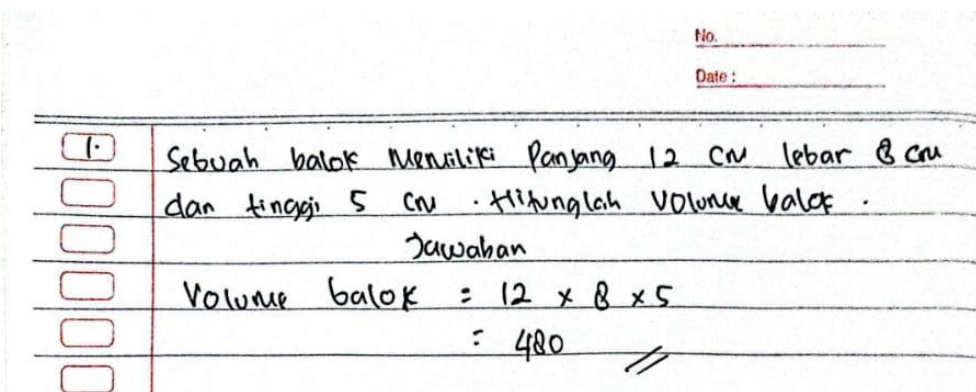 No.
Date :
1. Sebuah balok Memiliki Panjang 12 cm lebar 8 cm
dan tinggi 5 cm . Hitunglah Volume balok .
Jawaban
Volume balok = 12 x 8 x 5
= 480